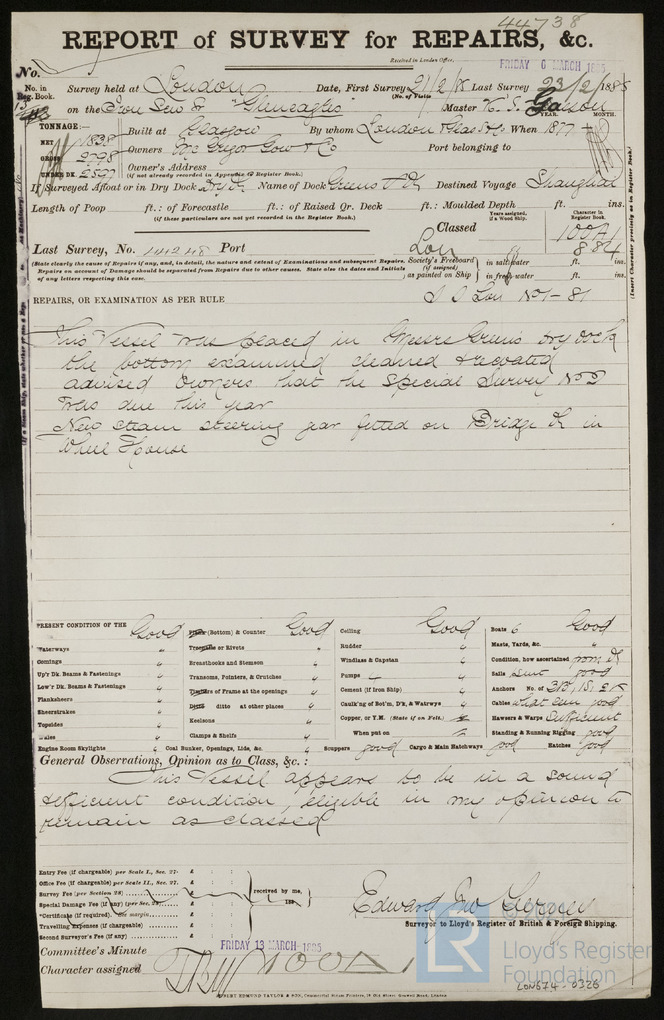 44738
REPORT of SURVEY for REPAIRS, &c.
Received in London Office, FRIDAY 6 MARCH 1885
No.
No. in Reg. Book. Survey held at London Date, First Survey 21/2/85 Last Survey 23/2/1885
(No. of Visits
on the Iron Scw Sr "Gleneagles" Master
YEAR. MONTH.
TONNAGE:— Built at Glasgow By whom London & Glas Co When 1877
NET 1838
Owners McGregor Gow & Co Port belonging to
GROSS 2798
Owner's Address
UNDER DK. 2597 (if not already recorded in Appendix to Register Book.)
If Surveyed Afloat or in Dry Dock Dry Dk Name of Dock Greens D Dk Destined Voyage Shanghai
Length of Poop ft.: of Forecastle ft.: of Raised Qr. Deck ft.: Moulded Depth ft. ins.
(if these particulars are not yet recorded in the Register Book.)
Years assigned, if a Wood Ship. Character in Register Book.
Classed 100A1
Last Survey, No. 44248 Port Lon 8 84
(State clearly the cause of Repairs if any, and, in detail, the nature and extent of Examinations and subsequent Repairs. Repairs on account of Damage should be separated from Repairs due to other causes. State also the dates and Initials of any letters respecting this case.
Society's Freeboard (if assigned) as painted on Ship in salt water ft. ins.
in fresh water ft. ins.
(Insert Character precisely as in Register Book.)
REPAIRS, OR EXAMINATION AS PER RULE S S Lon No1-81
This Vessel was placed in Messrs Greens dry dock
the bottom examined cleaned & recoated
advised Owners that the Special Survey No 2
was due this year
New steam steering gear fitted on Bridge Dk in
Wheel House
PRESENT CONDITION OF THE Good (Bottom) & Counter Good Ceiling Good Boats 6 Good
Waterways " or Rivets " Rudder " Masts, Yards, &c. "
Comings " Breasthooks and Stemson " Windlass & Capstan " Condition, how ascertained from Dk
Up'r Dk. Beams & Fastenings " Transoms, Pointers, & Crutches " Pumps " Sails suft good
Low'r Dk. Beams & Fastenings " Timbers of Frame at the openings " Cement (if Iron Ship) " Anchors No. of 3B, 1S, 2K
Planksheers " Ditto ditto at other places " Caulk'ng of Bot'm, D'k, & Watrwys " Cables what seen good
Sheerstrakes " Keelsons " Copper, or Y.M. (State if on Felt.) Hawsers & Warps Sufficient
Topsides " Clamps & Shelfs " When put on Standing & Running Rigging good
Wales "
Engine Room Skylights " Coal Bunker, Openings, Lids, &c. " Scuppers good Cargo & Main Hatchways good Hatches good
General Observations, Opinion as to Class, &c. :
This Vessel appears to be in a sound
& efficient condition, eligible in my opinion to
remain as classed
Entry Fee (if chargeable) per Scale I., Sec. 27. £
Office Fee (if chargeable) per Scale II., Sec. 27. £
Survey Fee (per Section 28) £
Special Damage Fee (if any) (per Sec. 28) £
*Certificate (if required). See margin. £
Travelling Expenses (if chargeable) £
Second Surveyor's Fee (if any) £
received by me,
188
Edward Jno
Surveyor to Lloyd's Register of British & Foreign Shipping.
Committee's Minute FRIDAY 13 MARCH 1885
Character assigned 100A1
ROBERT EDMUND TAYLOR & SON, Commercial Steam Printers, 19, Old Street, Goswell Road, London
LR
Lloyd's Register
Foundation
LON674-0326